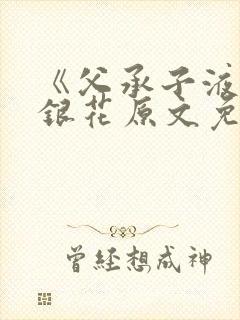 《父承子液
銀花原文免
曾经想成神